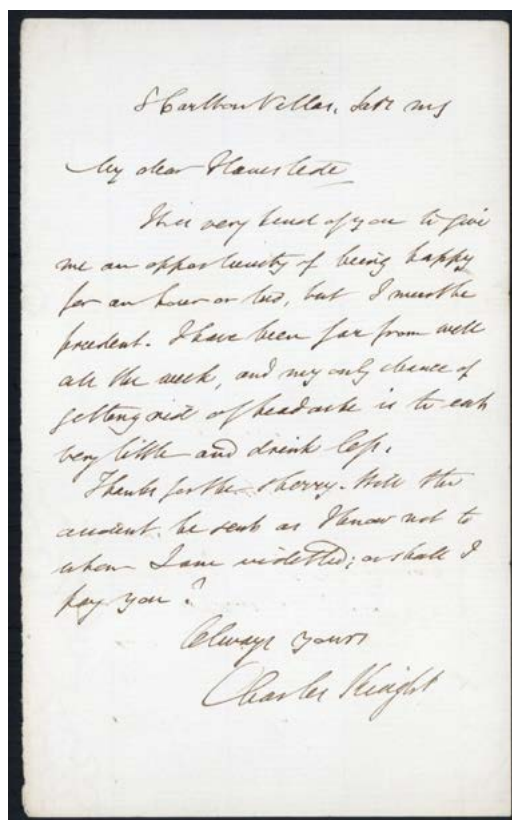 8 Carlton Villas, Saty mg
My dear
It is very kind of you to give
me an opportunity of being happy
for an hour or two, but I must be
prudent. I have been far from well
all the week, and my only chance of
getting rid of headache is to eat
very little and drink less.
Thanks for the sherry. Will the
account be sent as I know not to
whom I am indebted; or shall I
pay you?
Always yours
Charles Knight